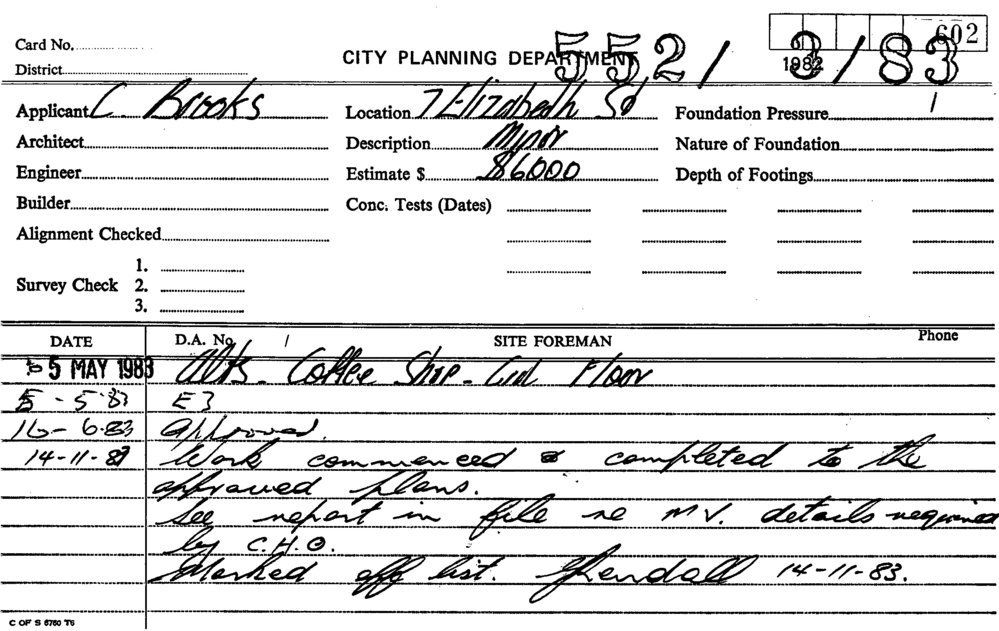 602
Card No.
CITY PLANNING DEPARTMENT 552/3/83
1982
District
Applicant C. Brooks Location 7 Elizabeth St Foundation Pressure
Architect Description Minor Nature of Foundation
Engineer Estimate $ $6000 Depth of Footings
Builder Conc. Tests (Dates)
Alignment Checked
1.
Survey Check 2.
3.
DATE D.A. No. / SITE FOREMAN Phone
5 MAY 1983 Alts - Coffee Shop - Gnd Floor
5-5-83 E3
16-6-83 Approved.
14-11-83 Work commenced & completed to the
approved plans.
See report in file re M.V. details required
by C.H.O.
Marked off list. 14-11-83.
C OF S 6760 T6